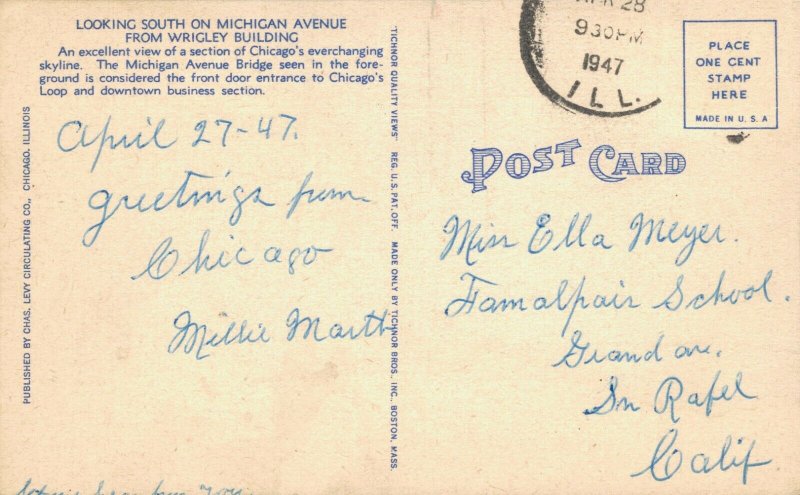 LOOKING SOUTH ON MICHIGAN AVENUE
FROM WRIGLEY BUILDING
An excellent view of a section of Chicago's everchanging
skyline. The Michigan Avenue Bridge seen in the fore-
ground is considered the front door entrance to Chicago's
Loop and downtown business section.
PUBLISHED BY CHAS. LEVY CIRCULATING CO., CHICAGO, ILLINOIS
April 27-47.
greetings from
Chicago
Millie Marth
"TICHNOR QUALITY VIEWS" REG. U. S. PAT. OFF. MADE ONLY BY TICHNOR BROS. INC., BOSTON, MASS.
APR 28
930PM
1947
ILL.
PLACE
ONE CENT
STAMP
HERE
MADE IN U. S. A
POST CARD
Miss Ella Meyer.
Famalpair School.
Grand ave.
Sn Rafel
Calif
from you